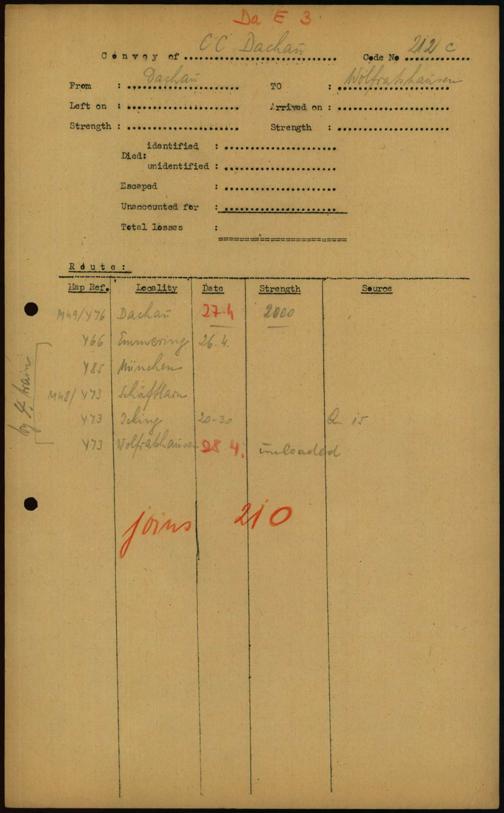 Da E 3
Convoy of CC Dachau Code No 212 c
From : Dachau TO : Wolfratshausen
Left on : Arrived on :
Strength : Strength :
identified :
Died:
unidentified :
Escaped :
Unaccounted for :
Total losses :
Route:
Map Ref. Locality Date Strength Source
M49/Y76 Dachau 27.4 2000
Y66 Emmering 26.4.
Y85 München
M48/Y73 Schäftlarn
Y73 Icking 20-30 Q 15
Y73 Wolfratshausen 28 4. unloaded
by train
joins 210